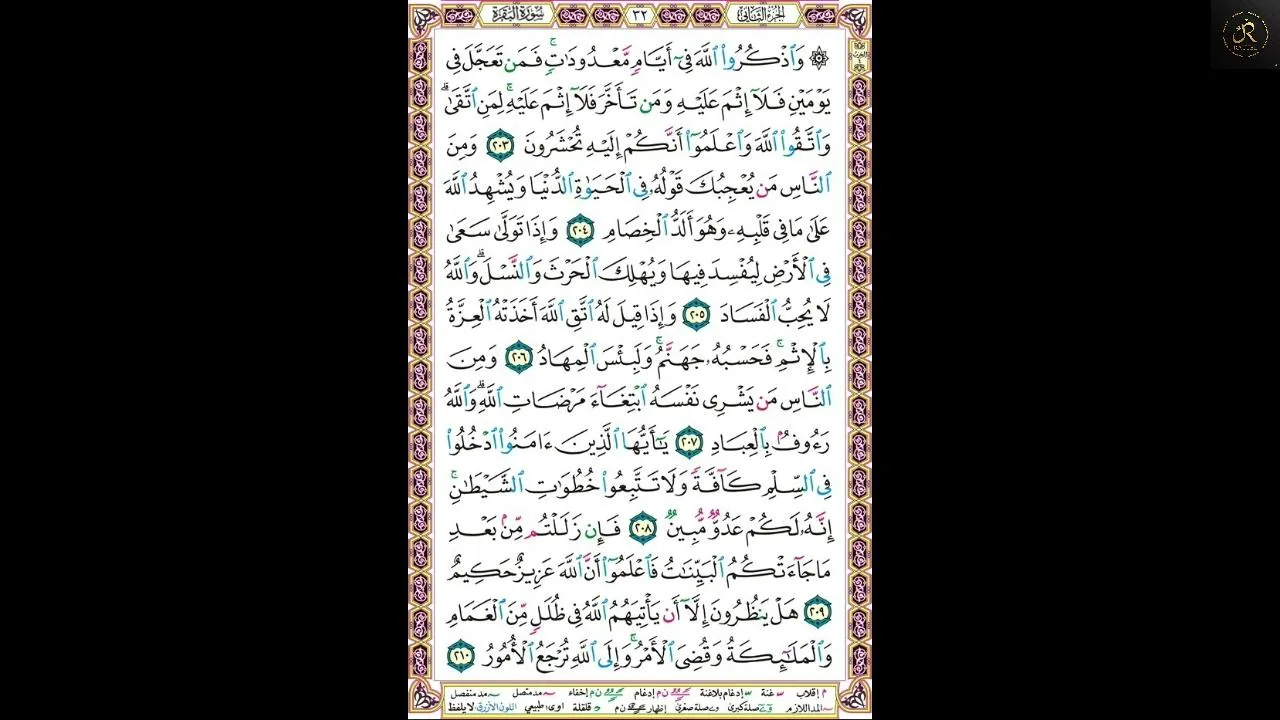 الجزء الثاني ٣٢ سورة البقرة
۞ وَٱذْكُرُوا۟ ٱللَّهَ فِىٓ أَيَّامٍ مَّعْدُودَٰتٍ ۚ فَمَن تَعَجَّلَ فِى
يَوْمَيْنِ فَلَآ إِثْمَ عَلَيْهِ وَمَن تَأَخَّرَ فَلَآ إِثْمَ عَلَيْهِ ۚ لِمَنِ ٱتَّقَىٰ ۗ
وَٱتَّقُوا۟ ٱللَّهَ وَٱعْلَمُوٓا۟ أَنَّكُمْ إِلَيْهِ تُحْشَرُونَ ٢٠٣ وَمِنَ
ٱلنَّاسِ مَن يُعْجِبُكَ قَوْلُهُۥ فِى ٱلْحَيَوٰةِ ٱلدُّنْيَا وَيُشْهِدُ ٱللَّهَ
عَلَىٰ مَا فِى قَلْبِهِۦ وَهُوَ أَلَدُّ ٱلْخِصَامِ ٢٠٤ وَإِذَا تَوَلَّىٰ سَعَىٰ
فِى ٱلْأَرْضِ لِيُفْسِدَ فِيهَا وَيُهْلِكَ ٱلْحَرْثَ وَٱلنَّسْلَ ۗ وَٱللَّهُ
لَا يُحِبُّ ٱلْفَسَادَ ٢٠٥ وَإِذَا قِيلَ لَهُ ٱتَّقِ ٱللَّهَ أَخَذَتْهُ ٱلْعِزَّةُ
بِٱلْإِثْمِ ۚ فَحَسْبُهُۥ جَهَنَّمُ ۚ وَلَبِئْسَ ٱلْمِهَادُ ٢٠٦ وَمِنَ
ٱلنَّاسِ مَن يَشْرِى نَفْسَهُ ٱبْتِغَآءَ مَرْضَاتِ ٱللَّهِ ۗ وَٱللَّهُ
رَءُوفٌۢ بِٱلْعِبَادِ ٢٠٧ يَٰٓأَيُّهَا ٱلَّذِينَ ءَامَنُوا۟ ٱدْخُلُوا۟
فِى ٱلسِّلْمِ كَآفَّةً وَلَا تَتَّبِعُوا۟ خُطُوَٰتِ ٱلشَّيْطَٰنِ ۚ
إِنَّهُۥ لَكُمْ عَدُوٌّ مُّبِينٌ ٢٠٨ فَإِن زَلَلْتُم مِّنۢ بَعْدِ
مَا جَآءَتْكُمُ ٱلْبَيِّنَٰتُ فَٱعْلَمُوٓا۟ أَنَّ ٱللَّهَ عَزِيزٌ حَكِيمٌ
٢٠٩ هَلْ يَنظُرُونَ إِلَّآ أَن يَأْتِيَهُمُ ٱللَّهُ فِى ظُلَلٍ مِّنَ ٱلْغَمَامِ
وَٱلْمَلَٰٓئِكَةُ وَقُضِىَ ٱلْأَمْرُ ۚ وَإِلَى ٱللَّهِ تُرْجَعُ ٱلْأُمُورُ ٢١٠
م إقلاب غنة إدغام بلاغنة ن م إدغام ن م إخفاء مد متصل مد منفصل
المد اللازم صلة كبرى صلة صغرى إظهار ن م قلقلة اوى طبيعي اللون الأزرق لا يلفظ